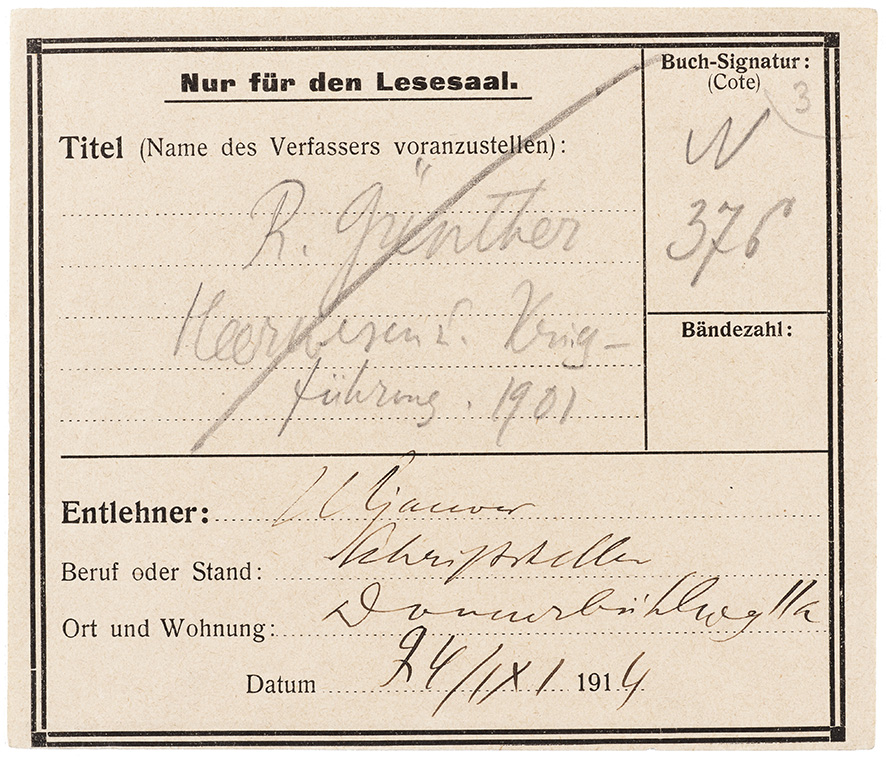 Nur für den Lesesaal.
Buch-Signatur:
(Cote)
3
Titel (Name des Verfassers voranzustellen):
W
376
R. Günther
Heerwesen u. Krieg-
führung. 1901
Bändezahl:
Entlehner:
Beruf oder Stand: Schriftsteller
Ort und Wohnung: Donnerbühlweg 11a
Datum 24/IX 1914